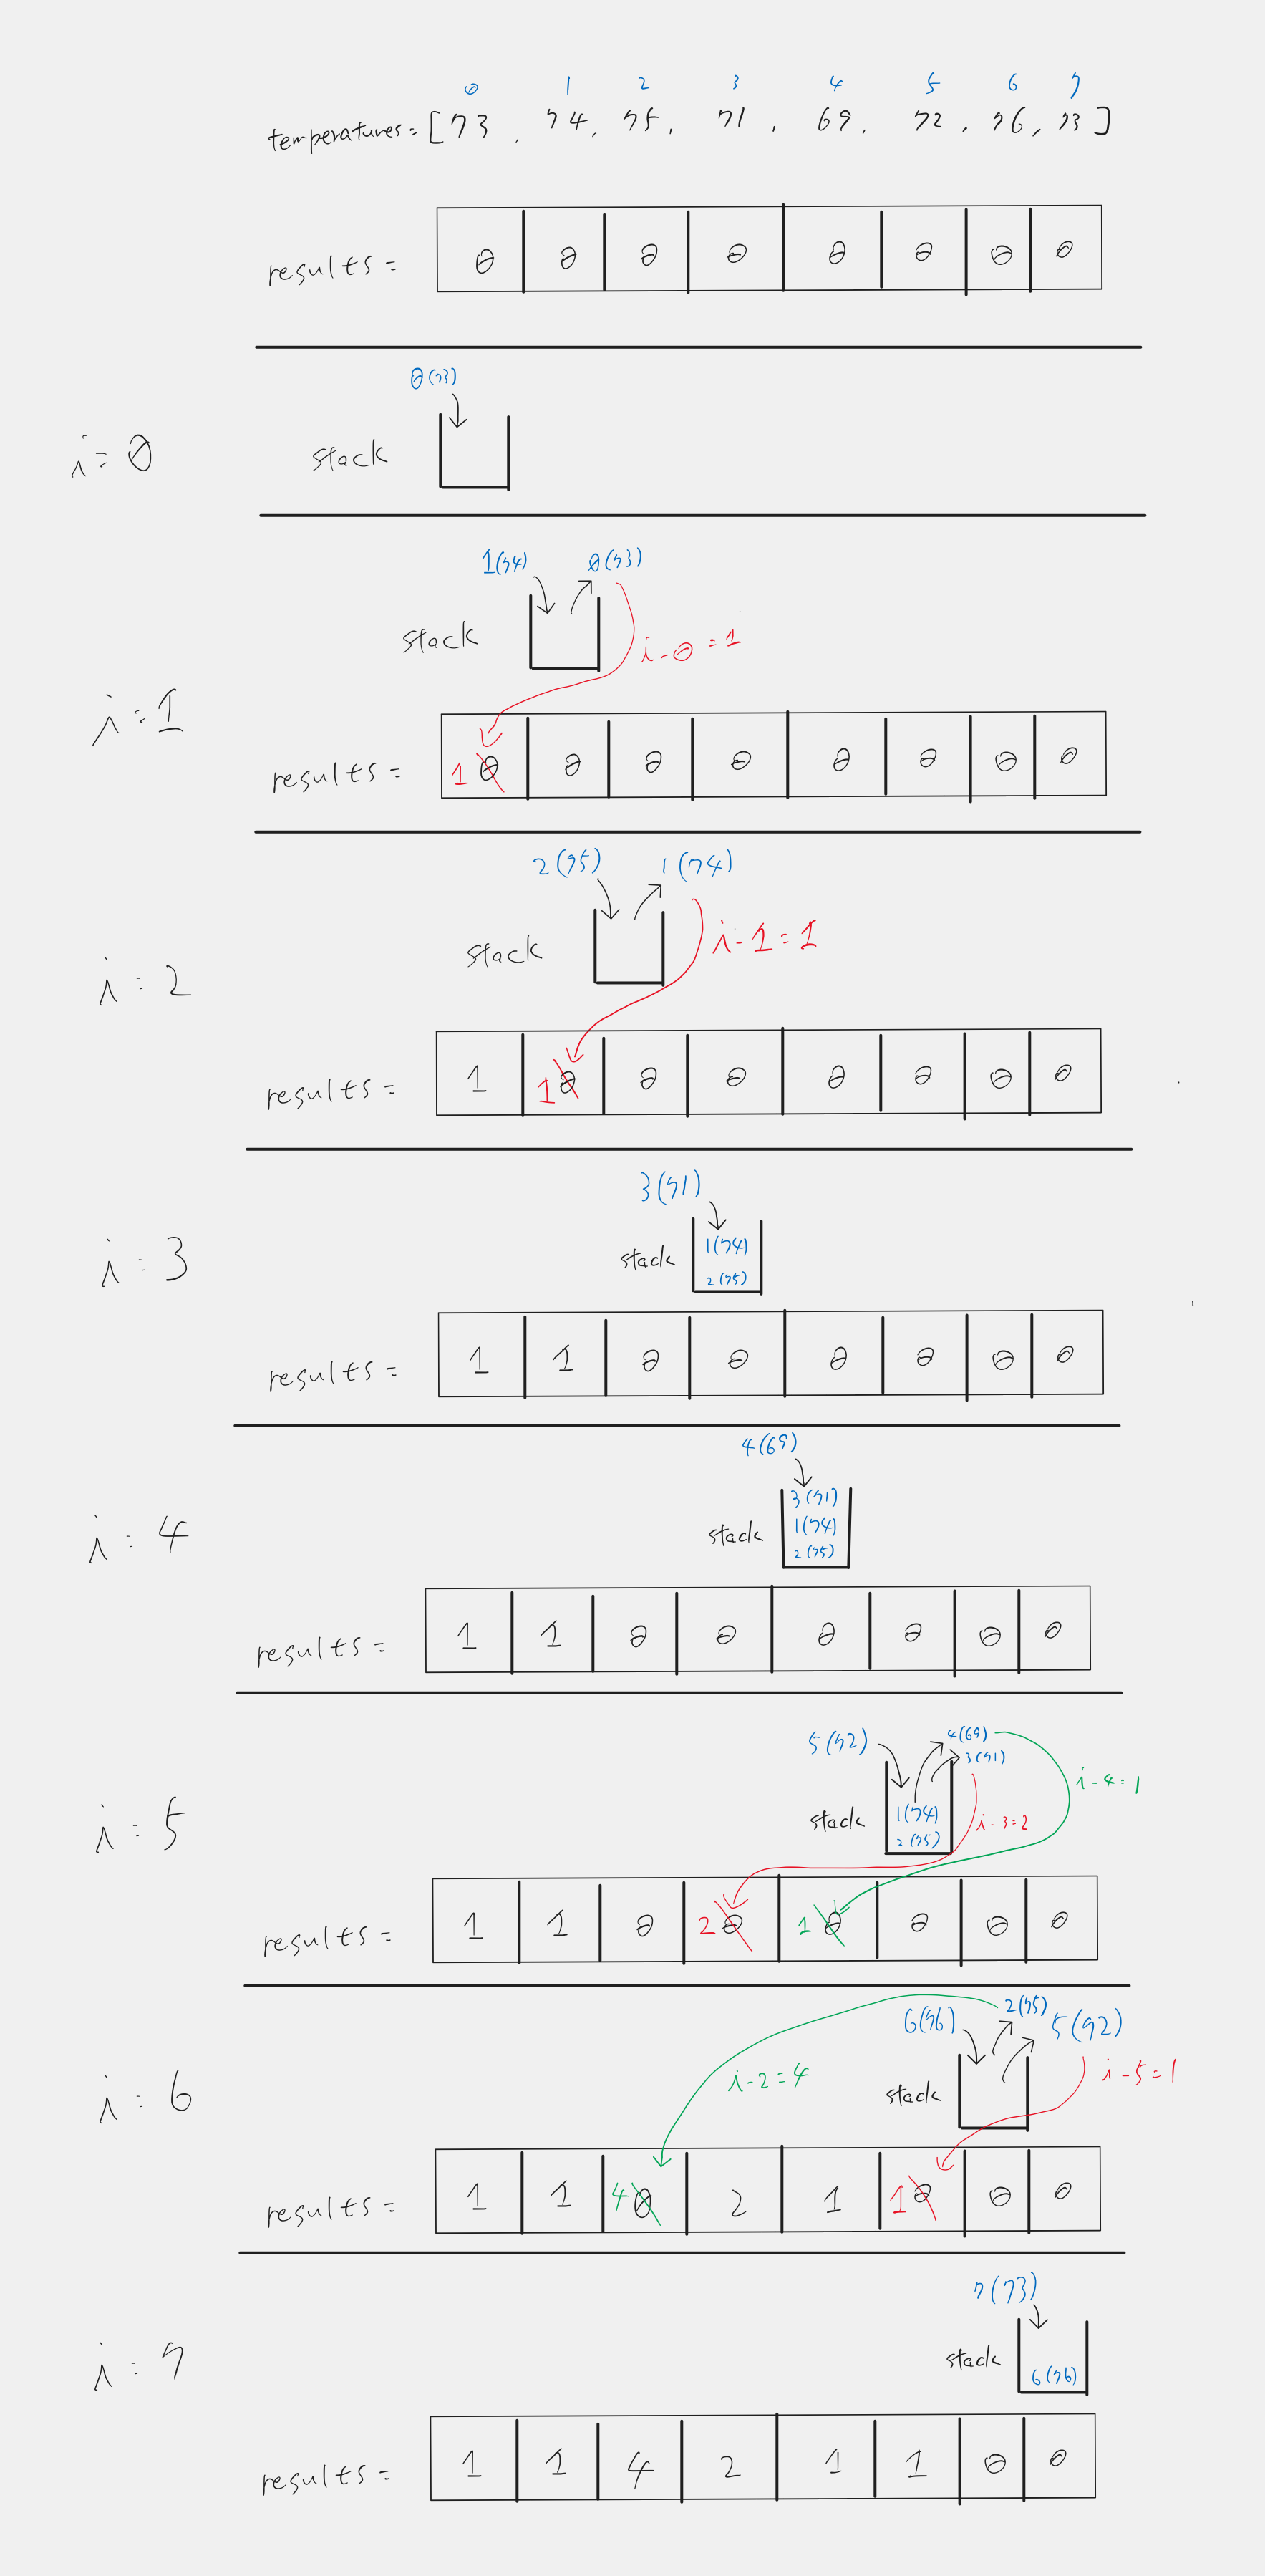 0 1 2 3 4 5 6 7
temperatures = [73, 74, 75, 71, 69, 72, 76, 73]
results = 0 0 0 0 0 0 0 0
0(73)
i=0 stack
1(74) 0(73)
stack i-0=1
i=1
results = 1 0 0 0 0 0 0 0 0
2(75) 1(74)
stack i-1=1
i=2
results = 1 1 0 0 0 0 0 0 0
3(71)
i=3 stack 1(74)
2(75)
results = 1 1 0 0 0 0 0 0
4(69)
3(71)
i=4 stack 1(74)
2(75)
results = 1 1 0 0 0 0 0 0
5(72) 4(69)
3(71)
i-4=1
i=5 stack 1(74) i-3=2
2(75)
results = 1 1 0 2 0 1 0 0 0 0
6(76) 2(75) 5(72)
i-2=4 i-5=1
i=6 stack
results = 1 1 4 0 2 1 1 0 0 0
7(73)
i=7 stack
6(76)
results = 1 1 4 2 1 1 0 0